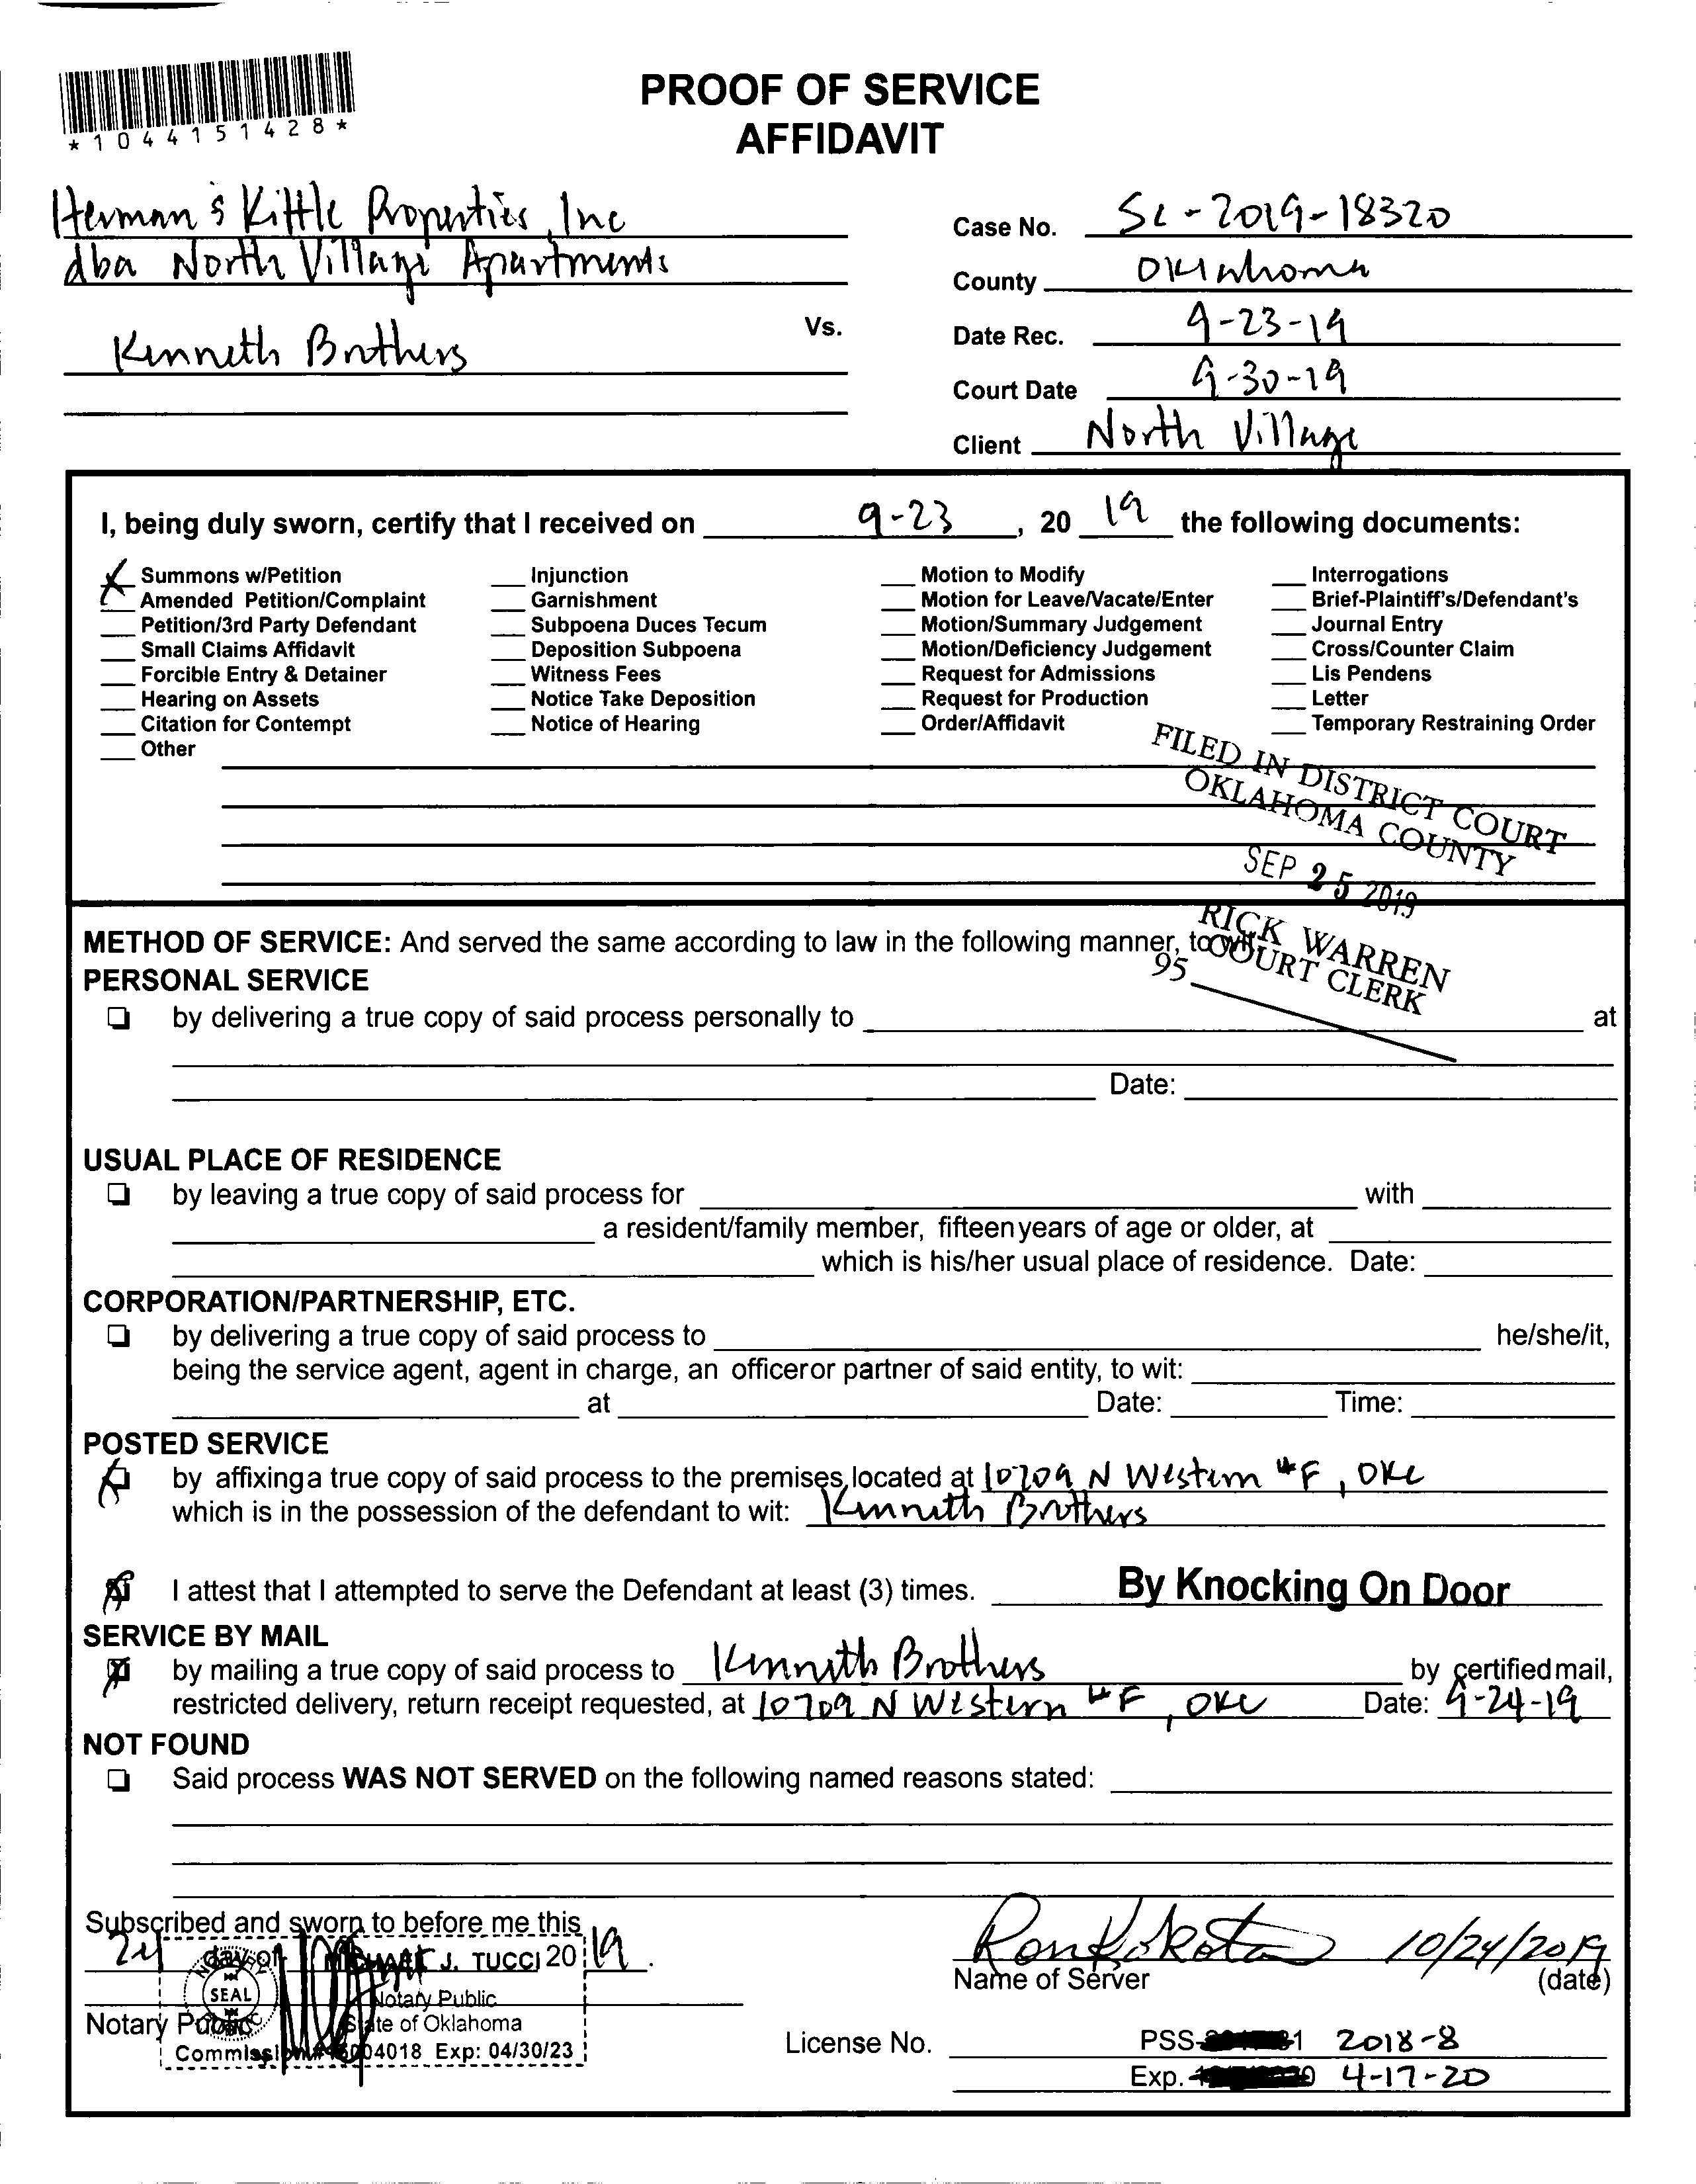 *1044151428*
PROOF OF SERVICE
AFFIDAVIT
Herman & Kittle Properties, Inc
dba North Village Apartments
Vs.
Kenneth Brothers
Case No. SC-2019-18320
County Oklahoma
Date Rec. 9-23-19
Court Date 9-30-19
Client North Village
I, being duly sworn, certify that I received on 9-23, 2019 the following documents:
Summons w/Petition
Amended Petition/Complaint
Petition/3rd Party Defendant
Small Claims Affidavit
Forcible Entry & Detainer
Hearing on Assets
Citation for Contempt
Other
Injunction
Garnishment
Subpoena Duces Tecum
Deposition Subpoena
Witness Fees
Notice Take Deposition
Notice of Hearing
Motion to Modify
Motion for Leave/Vacate/Enter
Motion/Summary Judgement
Motion/Deficiency Judgement
Request for Admissions
Request for Production
Order/Affidavit
Interrogations
Brief-Plaintiff's/Defendant's
Journal Entry
Cross/Counter Claim
Lis Pendens
Letter
Temporary Restraining Order
FILED IN DISTRICT COURT
OKLAHOMA COUNTY
SEP 25 2019
RICK WARREN
COURT CLERK
95
METHOD OF SERVICE: And served the same according to law in the following manner, to wit:
PERSONAL SERVICE
by delivering a true copy of said process personally to at
Date:
USUAL PLACE OF RESIDENCE
by leaving a true copy of said process for with
a resident/family member, fifteen years of age or older, at
which is his/her usual place of residence. Date:
CORPORATION/PARTNERSHIP, ETC.
by delivering a true copy of said process to he/she/it,
being the service agent, agent in charge, an officeror partner of said entity, to wit:
at Date: Time:
POSTED SERVICE
by affixing a true copy of said process to the premises, located at 10709 N Western #F, OKC
which is in the possession of the defendant to wit: Kenneth Brothers
I attest that I attempted to serve the Defendant at least (3) times. By Knocking On Door
SERVICE BY MAIL
by mailing a true copy of said process to Kenneth Brothers by certified mail,
restricted delivery, return receipt requested, at 10709 N Western #F, OKC Date: 9-24-19
NOT FOUND
Said process WAS NOT SERVED on the following named reasons stated:
Subscribed and sworn to before me this
24 day of 2019.
J. TUCCI
Notary Public
SEAL
State of Oklahoma
Notary Public
Exp: 04/30/23
10/24/2019
Name of Server (date)
License No. PSS- 2018-8
Exp. 4-17-20